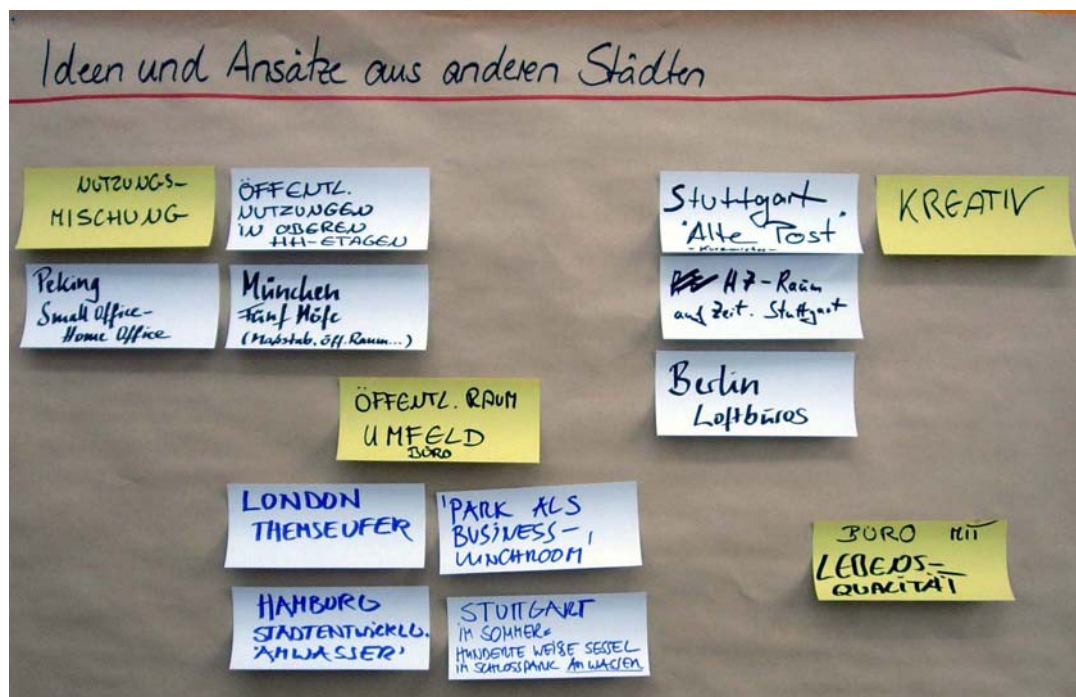 Ideen und Ansätze aus anderen Städten
NUTZUNGS-
MISCHUNG
ÖFFENTL.
NUTZUNGEN
IN OBEREN
HH-ETAGEN
Peking
Small Office-
Home Office
München
Fünf Höfe
(Maßstab, öff. Raum...)
ÖFFENTL. RAUM
UMFELD
BÜRO
LONDON
THEMSEUFER
'PARK ALS
BUSINESS-
LUNCHROOM'
HAMBURG
STADTENTWICKL.
'AM WASSER'
STUTTGART
IM SOMMER
HUNDERTE WEIßE SESSEL
IM SCHLOSSPARK AM WASSER
Stuttgart
'Alte Post'
-Raum
auf Zeit. Stuttgart
Berlin
Loftbüros
KREATIV
BÜRO MIT
LEBENS-
QUALITÄT